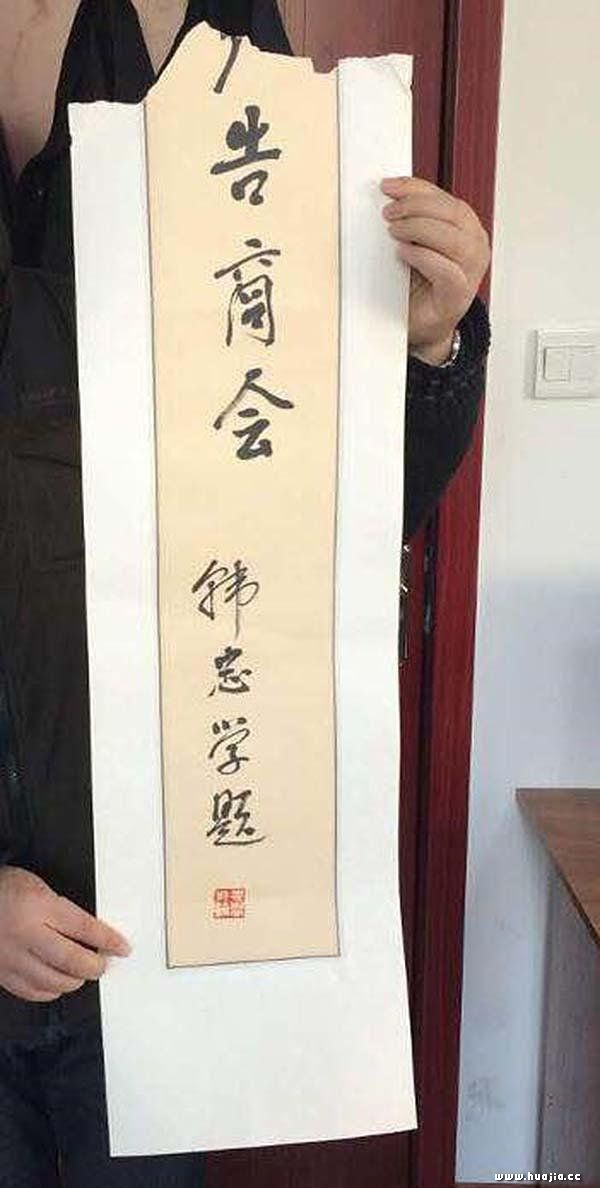 告商会
韩忠学题
www.huajia.cc